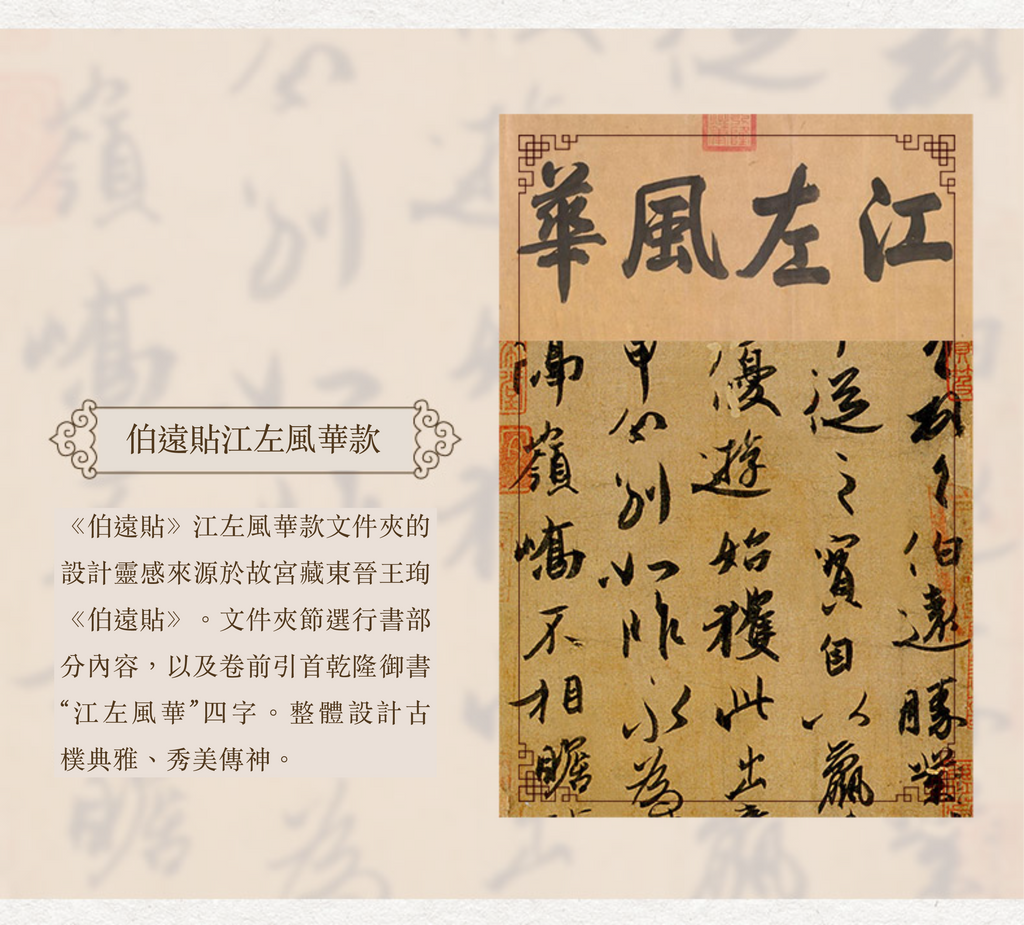 伯遠貼江左風華款
《伯遠貼》江左風華款文件夾的
設計靈感來源於故宮藏東晉王珣
《伯遠貼》。文件夾節選行書部
分內容，以及卷前引首乾隆御書
“江左風華”四字。整體設計古
樸典雅、秀美傳神。
江左風華
伯遠勝業
從之寶自以羸
優遊始獲此出
申分別如昨永為
嶺嶠不相瞻